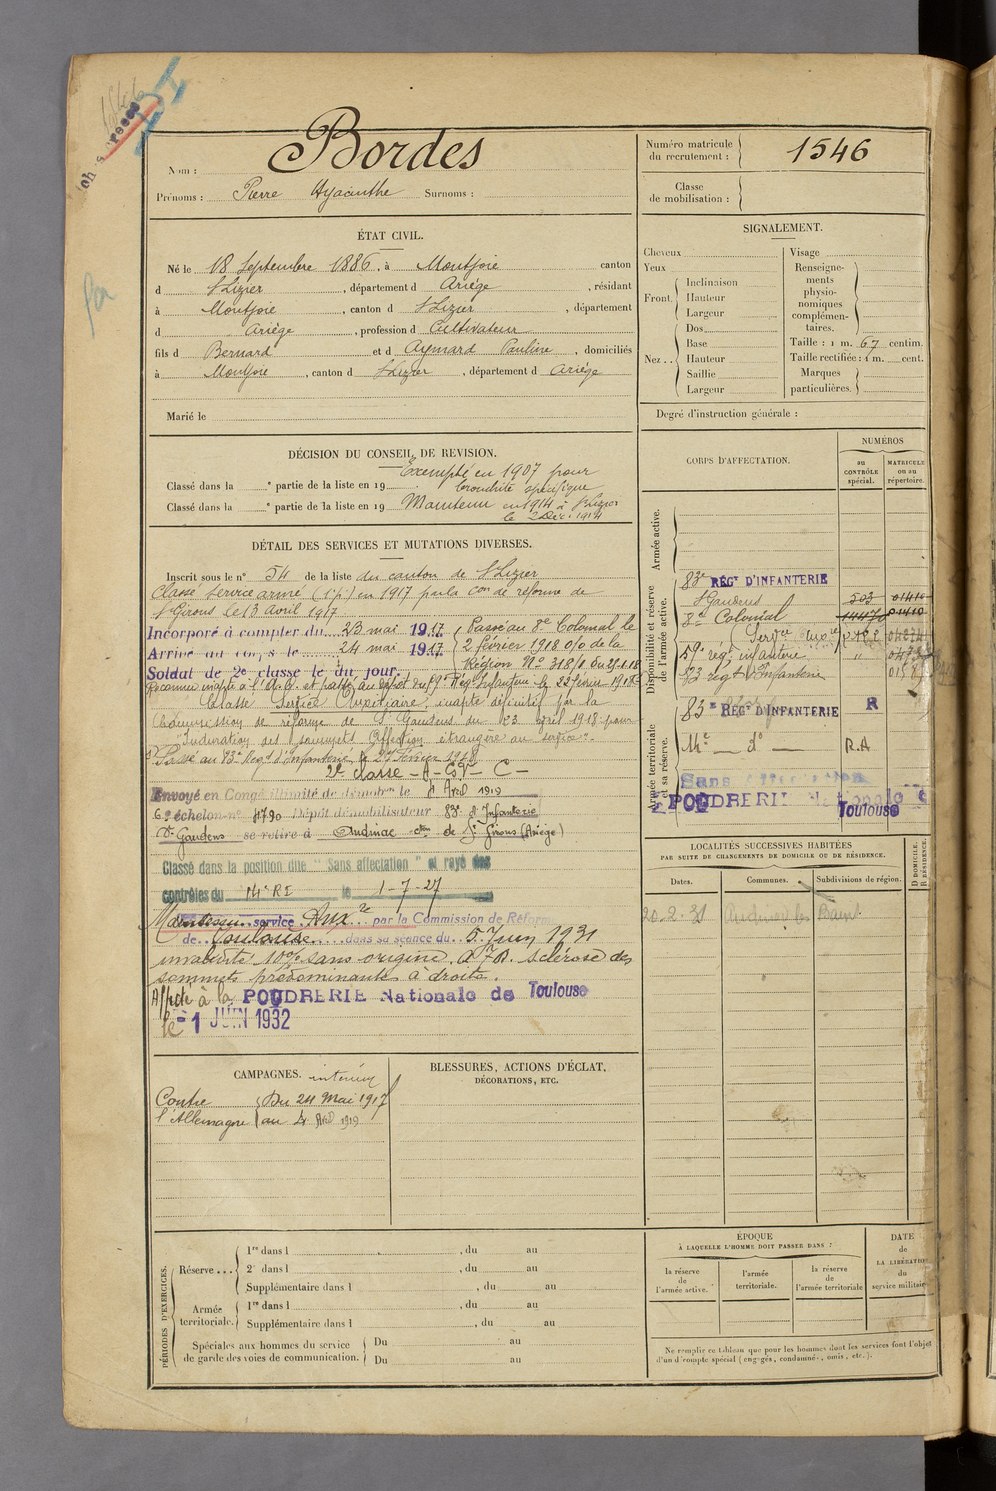 1546
Nom : Bordes
Prénoms : Pierre Hyacinthe Surnoms :
Numéro matricule
du recrutement : 1546
Classe
de mobilisation :
ÉTAT CIVIL.
Né le 18 Septembre 1886, à Montjoie canton
d St Lizier, département d Ariège, résidant
à Montjoie, canton d St Lizier, département
d Ariège, profession d Cultivateur
fils d Bernard et d Aymard Pauline, domiciliés
à Montjoie, canton d St Lizier, département d Ariège
Marié le
SIGNALEMENT.
Cheveux
Yeux
Front.
Inclinaison
Hauteur
Largeur
Nez..
Dos
Base
Hauteur
Saillie
Largeur
Visage
Renseigne-
ments
physio-
nomiques
complémen-
taires.
Taille : 1 m. 67 centim.
Taille rectifiée : 1 m. cent.
Marques
particulières.
Degré d'instruction générale :
DÉCISION DU CONSEIL DE REVISION.
Exempté en 1907 pour
Classé dans la e partie de la liste en 19 bronchite spécifique
Classé dans la e partie de la liste en 19 Maintenu en 1914 à St Lizier
le 2 Déc. 1914
DÉTAIL DES SERVICES ET MUTATIONS DIVERSES.
Inscrit sous le n° 54 de la liste du canton de St Lizier
Classé service armé (1e p.) en 1917 par la con de réforme de
St Girons le 13 avril 1917
Incorporé à compter du 23 mai 1917
Arrivé au corps le 24 mai 1917
Soldat de 2e classe le dit jour.
Passé au 8e Colonial le
2 février 1918 o/o de la
Région No 318/1 du 25-1-18
Reconnu inapte à l'A.O. et passé au dépôt du 59e Reg. Infanterie le 22 février 1918
Classé Service Auxiliaire, inapte définitif par la
Commission de réforme de St Gaudens du 23 avril 1918 pour
"Induration des sommets Affection étrangère au service".
Passé au 83e Regt d'Infanterie le
2e classe - A - C
Envoyé en Congé illimité de démobon le 4 Avril 1919
6e échelon n° 4790 Dépôt démobilisateur 83e d'Infanterie
St Gaudens se retire à Audinac con de St Girons (Ariège)
Classé dans la position dite "Sans affectation" et rayé des
contrôles du 14e RE le 1-7-27
Maintenu service Auxre par la Commission de Réforme
de Toulouse dans sa séance du 5 Juin 1931
invalidité 10% sans origine. sclérose des
sommets prédominante à droite.
Affecté à la POUDRERIE Nationale de Toulouse
le 1 JUIN 1932
CORPS D'AFFECTATION.
NUMÉROS
au
CONTRÔLE
spécial.
MATRICULE
ou au
répertoire.
Armée active.
Disponibilité et réserve
de l'armée active.
Armée territoriale
et sa réserve.
83e RÉGT D'INFANTERIE
St Gaudens 503
8e Colonial
(Servce Auxre)
59e régt infanterie "
83 régt d'Infanterie
83e REGT D'INFANTERIE R
14e — do — R.A
Sans affectation
POUDRERIE Nationale de
Toulouse
LOCALITÉS SUCCESSIVES HABITÉES
PAR SUITE DE CHANGEMENTS DE DOMICILE OU DE RÉSIDENCE.
Dates.
Communes.
Subdivisions de région.
D DOMICILE.
R RÉSIDENCE.
20-2-31 Audinac les Bains
CAMPAGNES.
Contre
l'Allemagne
Du 24 Mai 1917
au 4 Avril 1919
BLESSURES, ACTIONS D'ÉCLAT,
DÉCORATIONS, ETC.
PÉRIODES D'EXERCICES.
Réserve...
1re dans l , du au
2e dans l , du au
Supplémentaire dans l , du au
Armée
territoriale.
1re dans l , du au
Supplémentaire dans l , du au
Spéciales aux hommes du service
de garde des voies de communication.
Du au
Du au
ÉPOQUE
À LAQUELLE L'HOMME DOIT PASSER DANS :
la réserve
de
l'armée active.
l'armée
territoriale.
la réserve
de
l'armée territoriale
DATE
de
LA LIBÉRATION
du
service militaire
Ne remplir ce tableau que pour les hommes dont les services font l'objet
d'un décompte spécial (engagés, condamnés, omis, etc.).